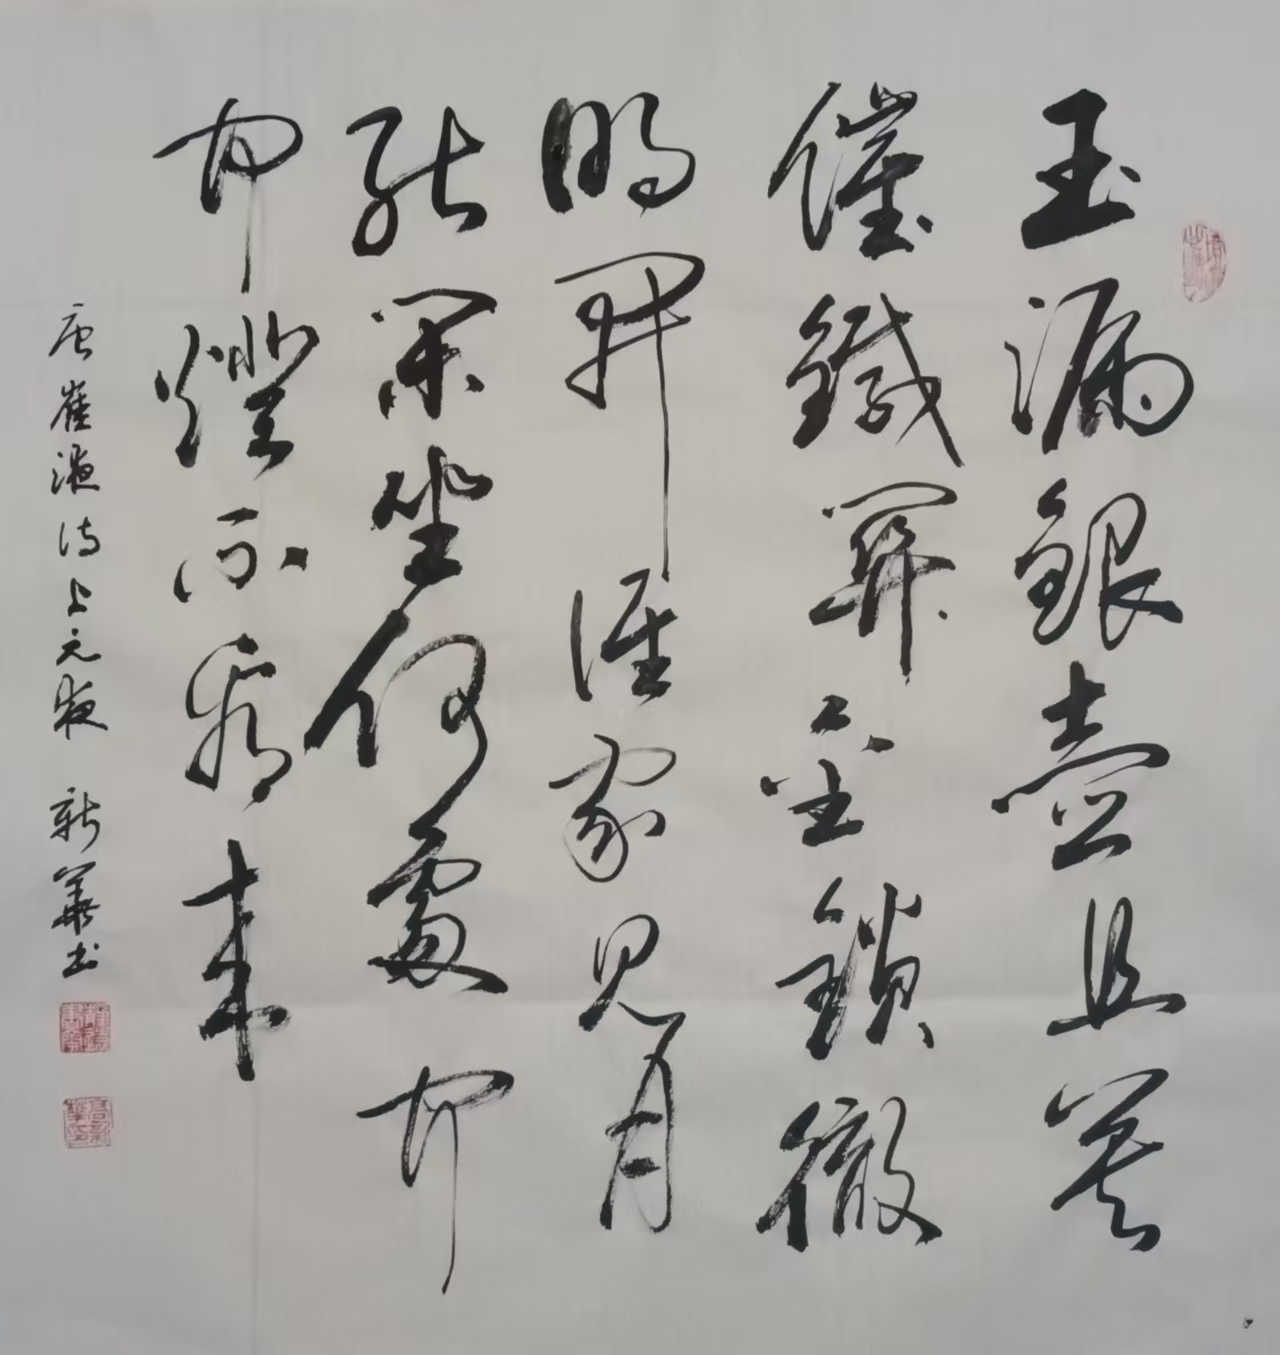 玉漏銀壺且莫
催鐵關金鎖徹
明開誰家見月
能閑坐何處聞
聞燈不看來
唐崔液詩上元夜 新華书